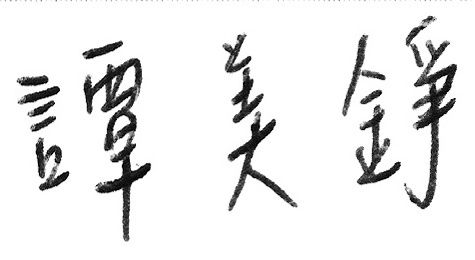 譚美錚